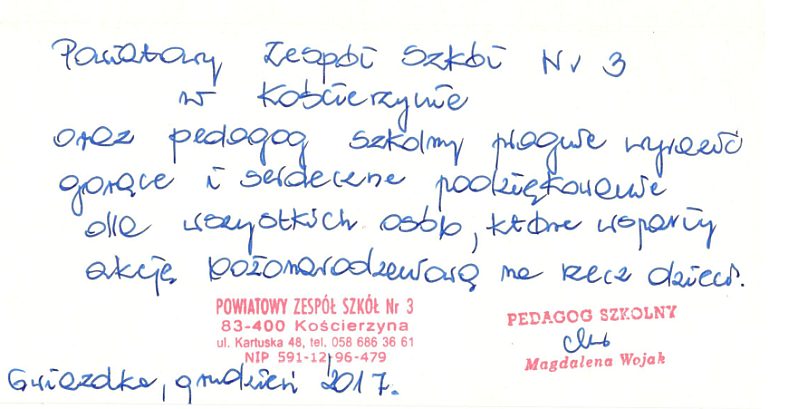 Powiatowy Zespół Szkół Nr 3
w Kościerzynie
oraz pedagog szkolny pragnie wyrazić
gorące i serdeczne podziękowanie
dla wszystkich osób, które wsparły
akcję bożonarodzeniową na rzecz dzieci.
POWIATOWY ZESPÓŁ SZKÓŁ Nr 3
83-400 Kościerzyna
ul. Kartuska 48, tel. 058 686 36 61
NIP 591-12-96-479
PEDAGOG SZKOLNY
Magdalena Wojak
Gwiazdka, grudzień 2017.